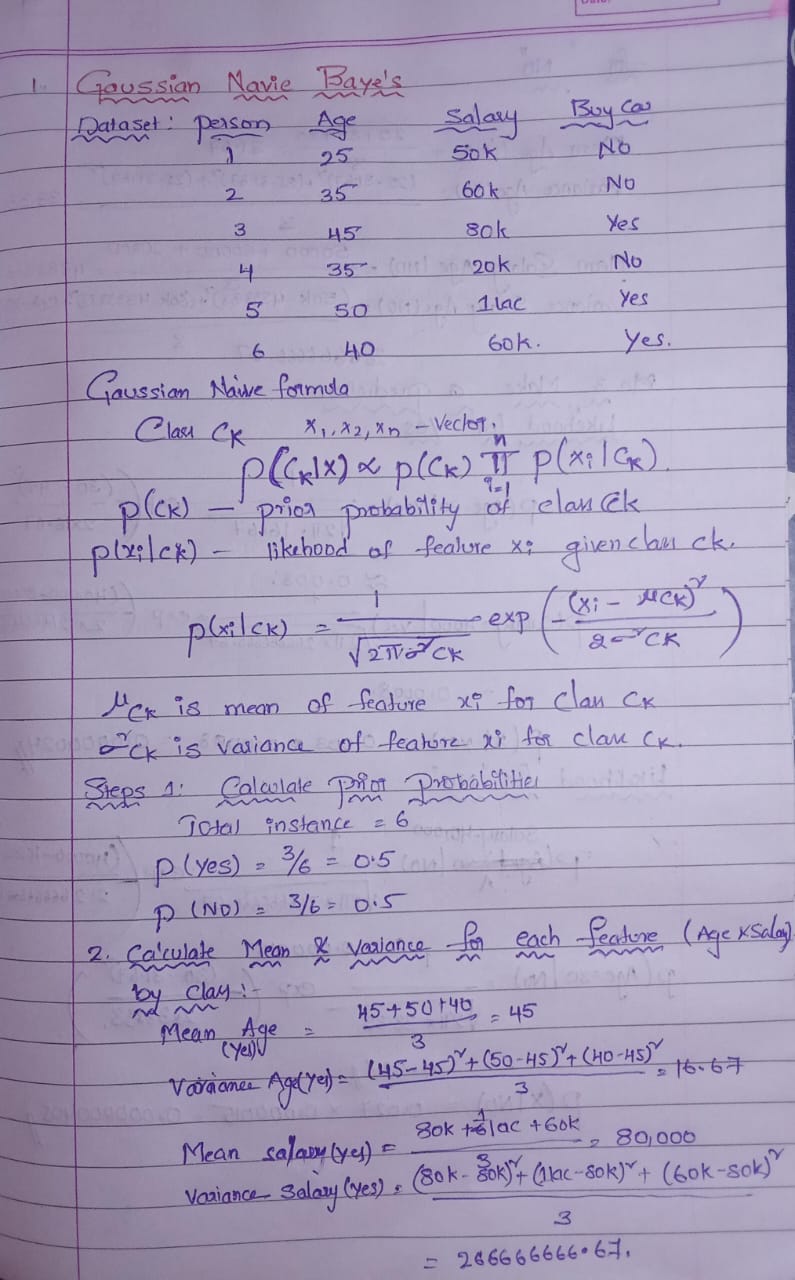 1. Gaussian Navie Baye's
Dataset: person Age Salary Buy Car
1 25 50k No
2 35 60k No
3 45 80k Yes
4 35 20k No
5 50 1lac Yes
6 40 60k. Yes.
Gaussian Naive formula
Class CK x1, x2, xn – Vector.
p(CK|x) ∝ p(CK) n∏i=1 p(xi|CK)
p(CK) – prior probability of class CK
p(xi|CK) – likehood of feature xi given class CK.
p(xi|CK) = 1/√2πσ²CK exp (-(xi – μCK)²/2σ²CK)
μCK is mean of feature xi for class CK
σ²CK is variance of feature xi for class CK.
Steps 1: Calculate Prior Probabilities
Total instance = 6
p(yes) = 3/6 = 0.5
p(NO) = 3/6 = 0.5
2. Calculate Mean & variance for each feature (Age & Salary)
by class:-
Mean Age (Yes) = 45+50+40/3 = 45
Variance Age(Yes) = (45-45)²+(50-45)²+(40-45)²/3 = 16.67
Mean salary(yes) = 80k + 1lac + 60k/3 = 80,000
Variance Salary(Yes) = (80k-80k)²+(1lac-80k)²+(60k-80k)²/3
= 266666666.67.